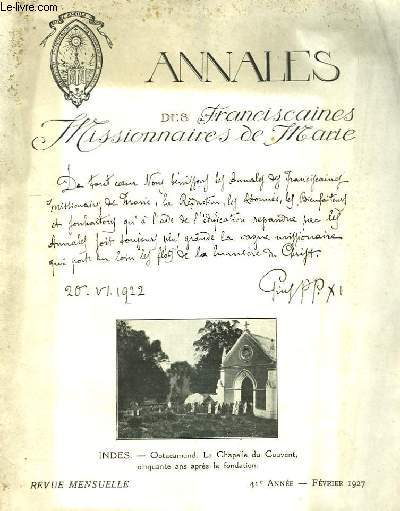 Le-livre.com
ANNALES
DES Franciscaines
Missionnaires de Marie
De tout cœur Nous bénissons les Annales des Franciscaines
missionaires de Marie; la Rédaction, les Abonnés, les Bienfaiteurs
et qu'à l'aide de l'édification répandue par les
Annales soit toujours plus grande la vague missionaire
qui porte au loin les flots de la lumière du Christ.
20. VI. 1922 Pius PP. XI
INDES. — Ootacamund. La Chapelle du Couvent,
cinquante ans après la fondation.
REVUE MENSUELLE 41e ANNÉE — FÉVRIER 1927